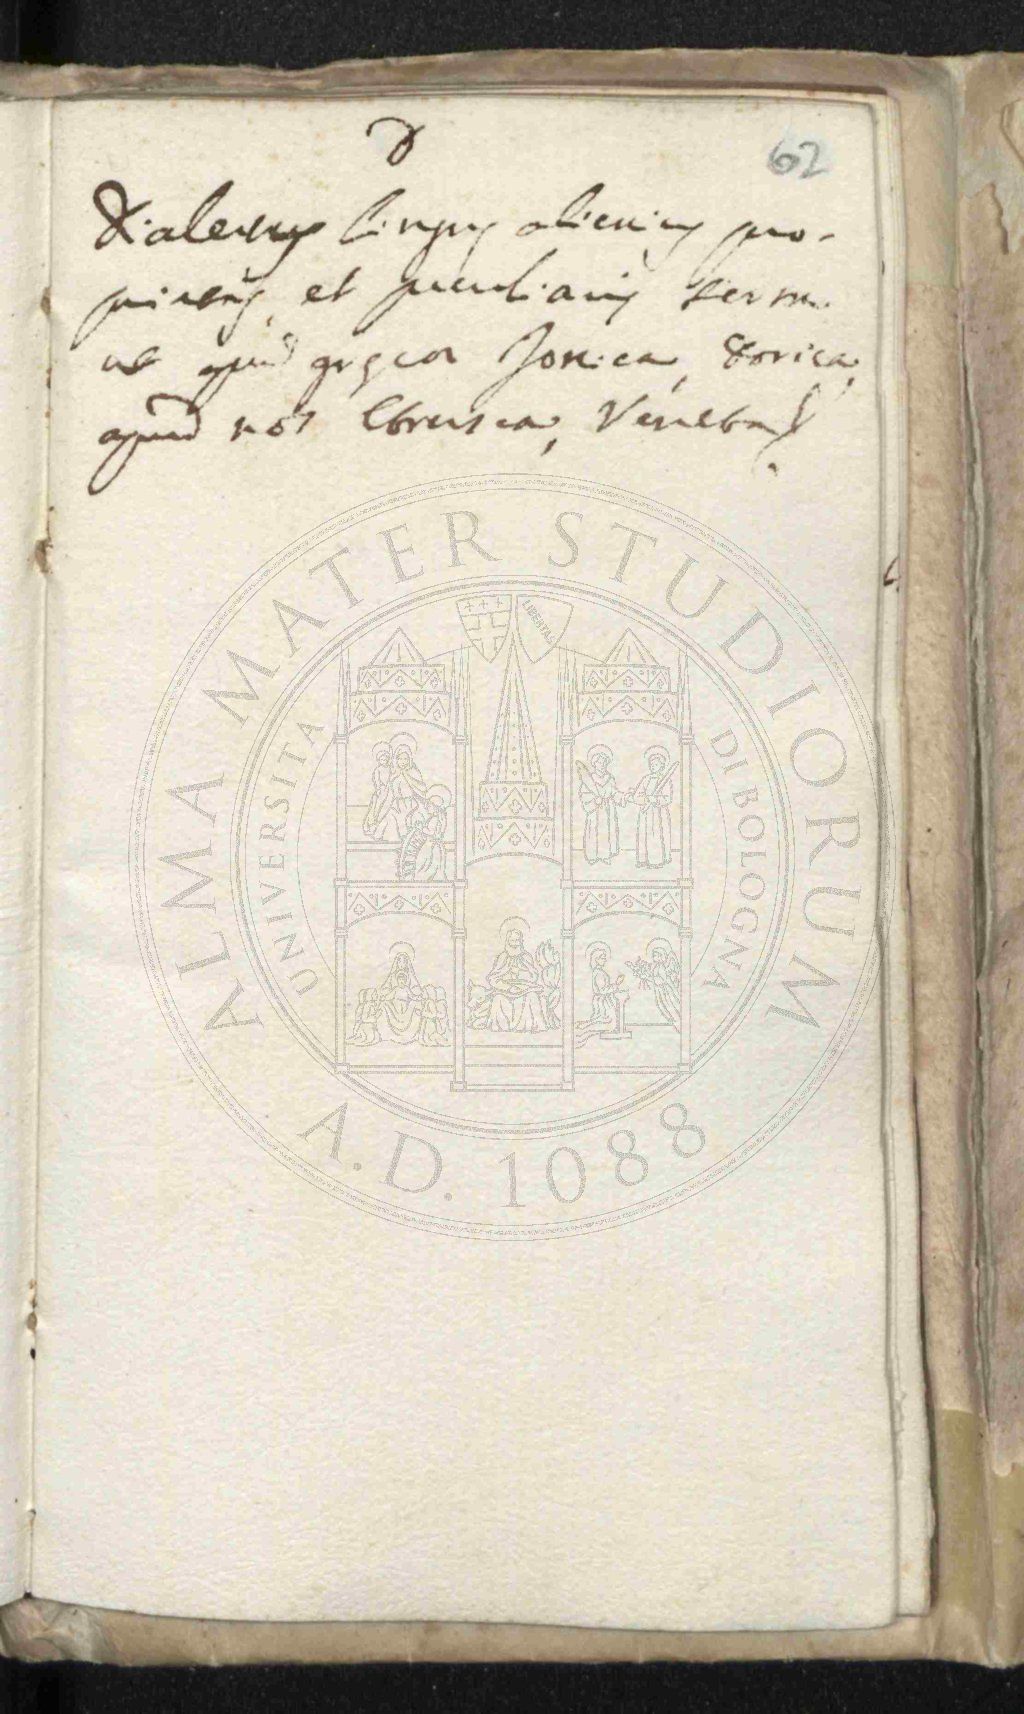 D
62
Dialectus linguę alicuius pro-
vincię, et peculiaris sermo
ut apud gręcos Jonica, Dorica,
apud nos Etrusca, Veneta
ALMA MATER STUDIORUM
UNIVERSITÀ DI BOLOGNA
LIBERTAS
A.D. 1088